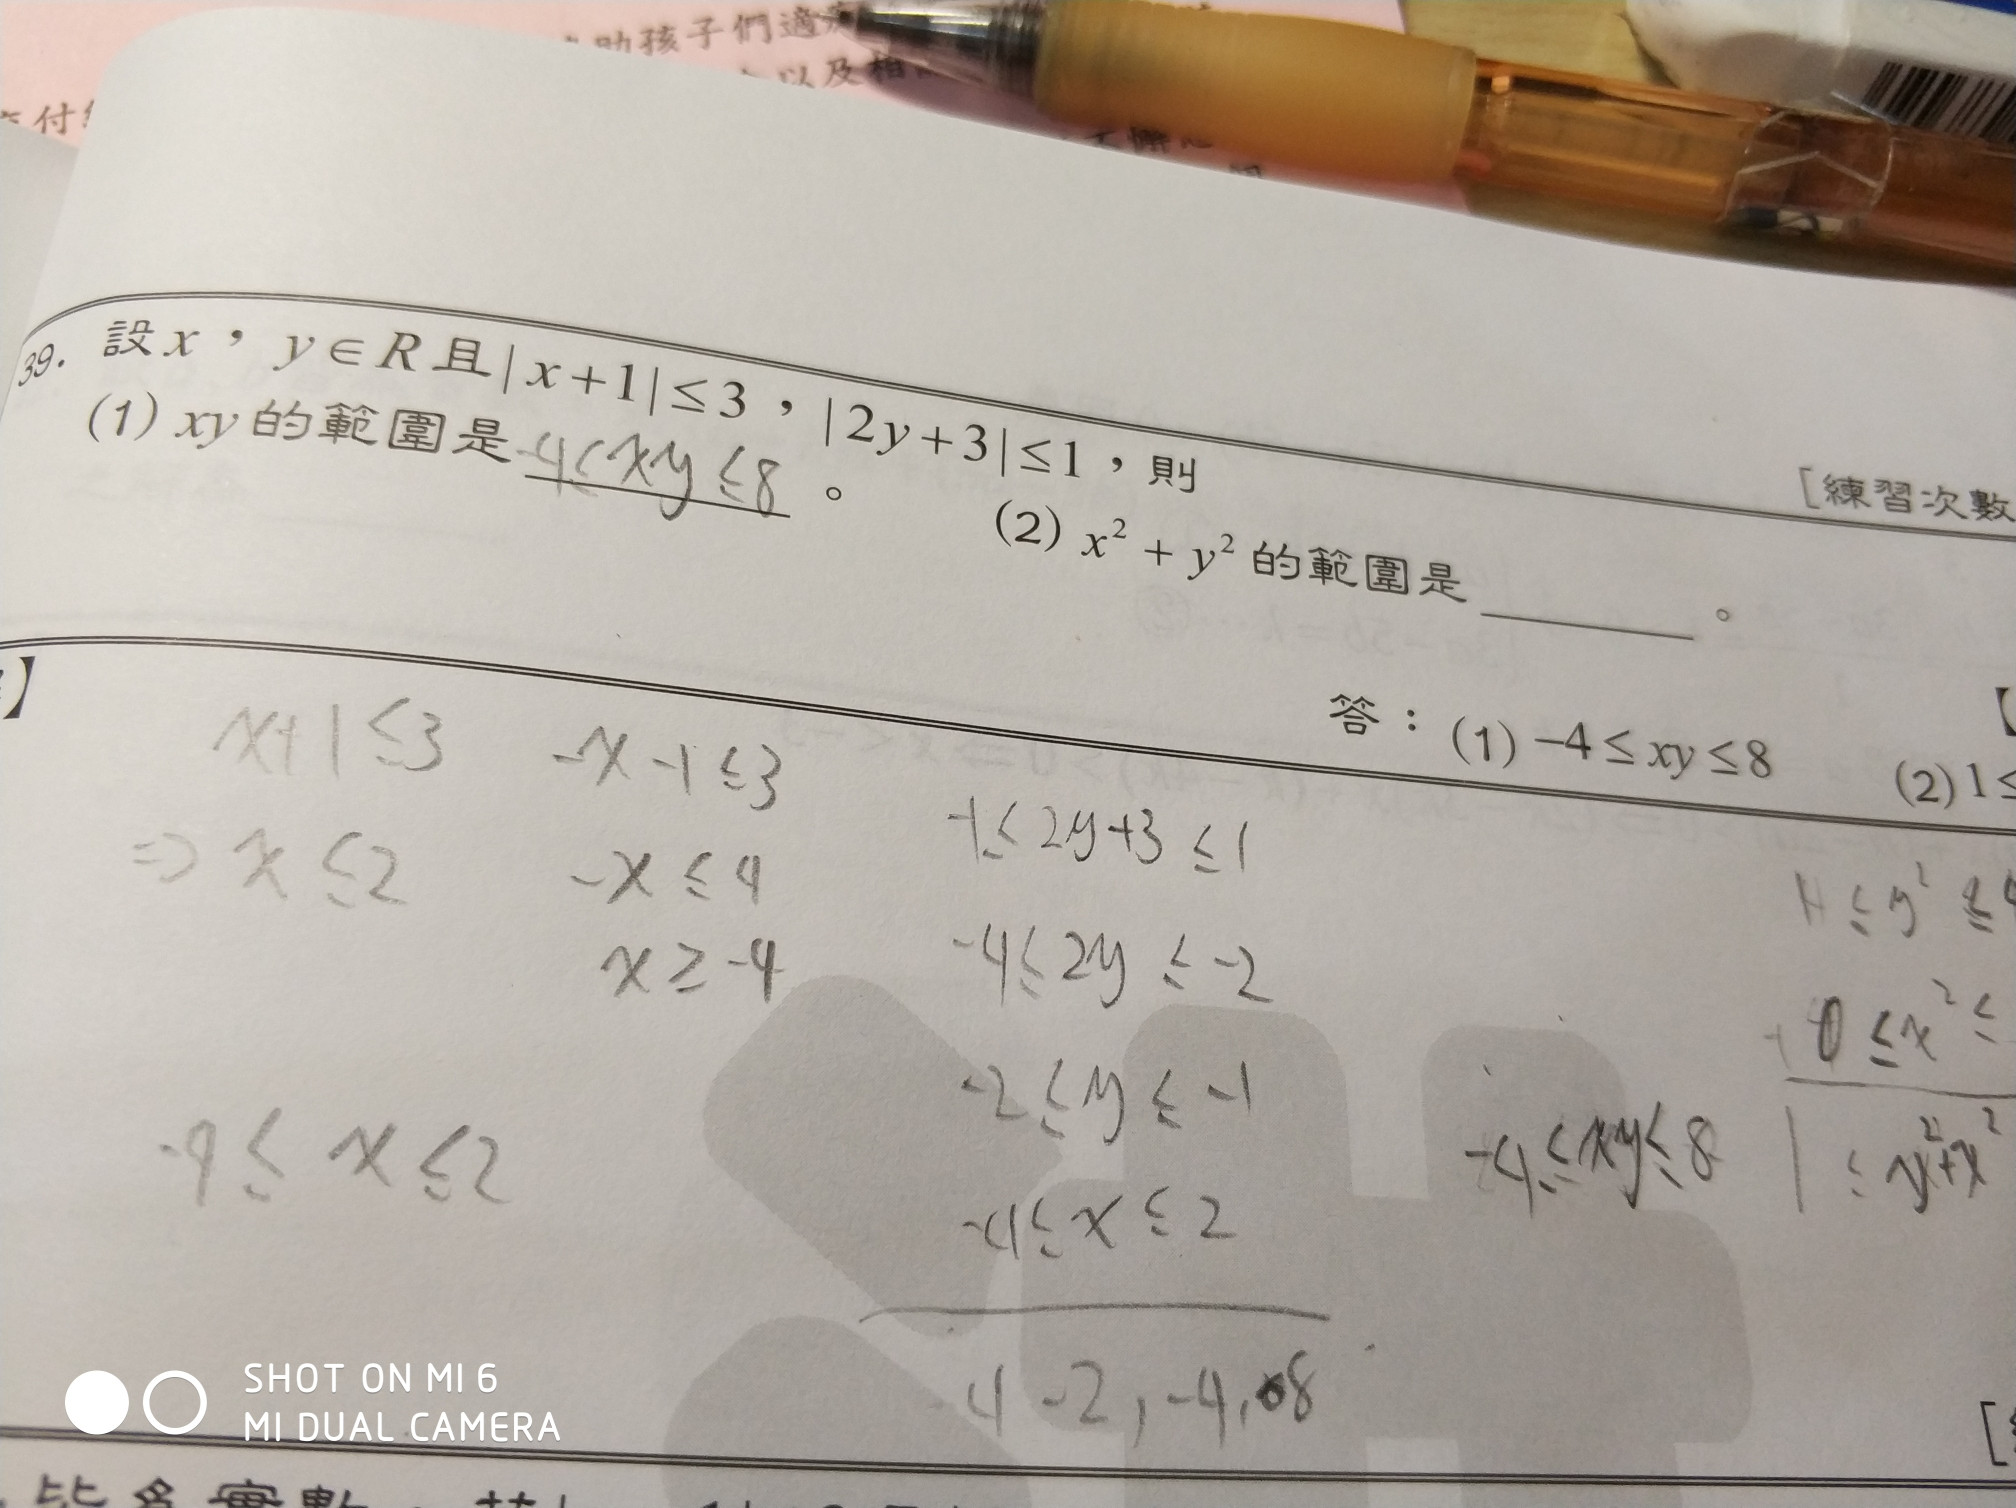 助孩子們適
以及相
付
39. 設x，y∈R且|x+1|≤3，|2y+3|≤1，則
[練習次數
(1) xy的範圍是 -4≤xy≤8 。
(2) x²+y²的範圍是______。
答：(1) -4≤xy≤8 (2) 1≤
】
x+1≤3
-x-1≤3
⇒ x≤2
-x≤4
x≥-4
-4≤x≤2
-1≤2y+3≤1
-4≤2y≤-2
-2≤y≤-1
-4≤x≤2
4 -2, -4, 8
-4≤xy≤8
1≤y²≤4
0≤x²≤
1≤y²+x²
SHOT ON MI 6
MI DUAL CAMERA